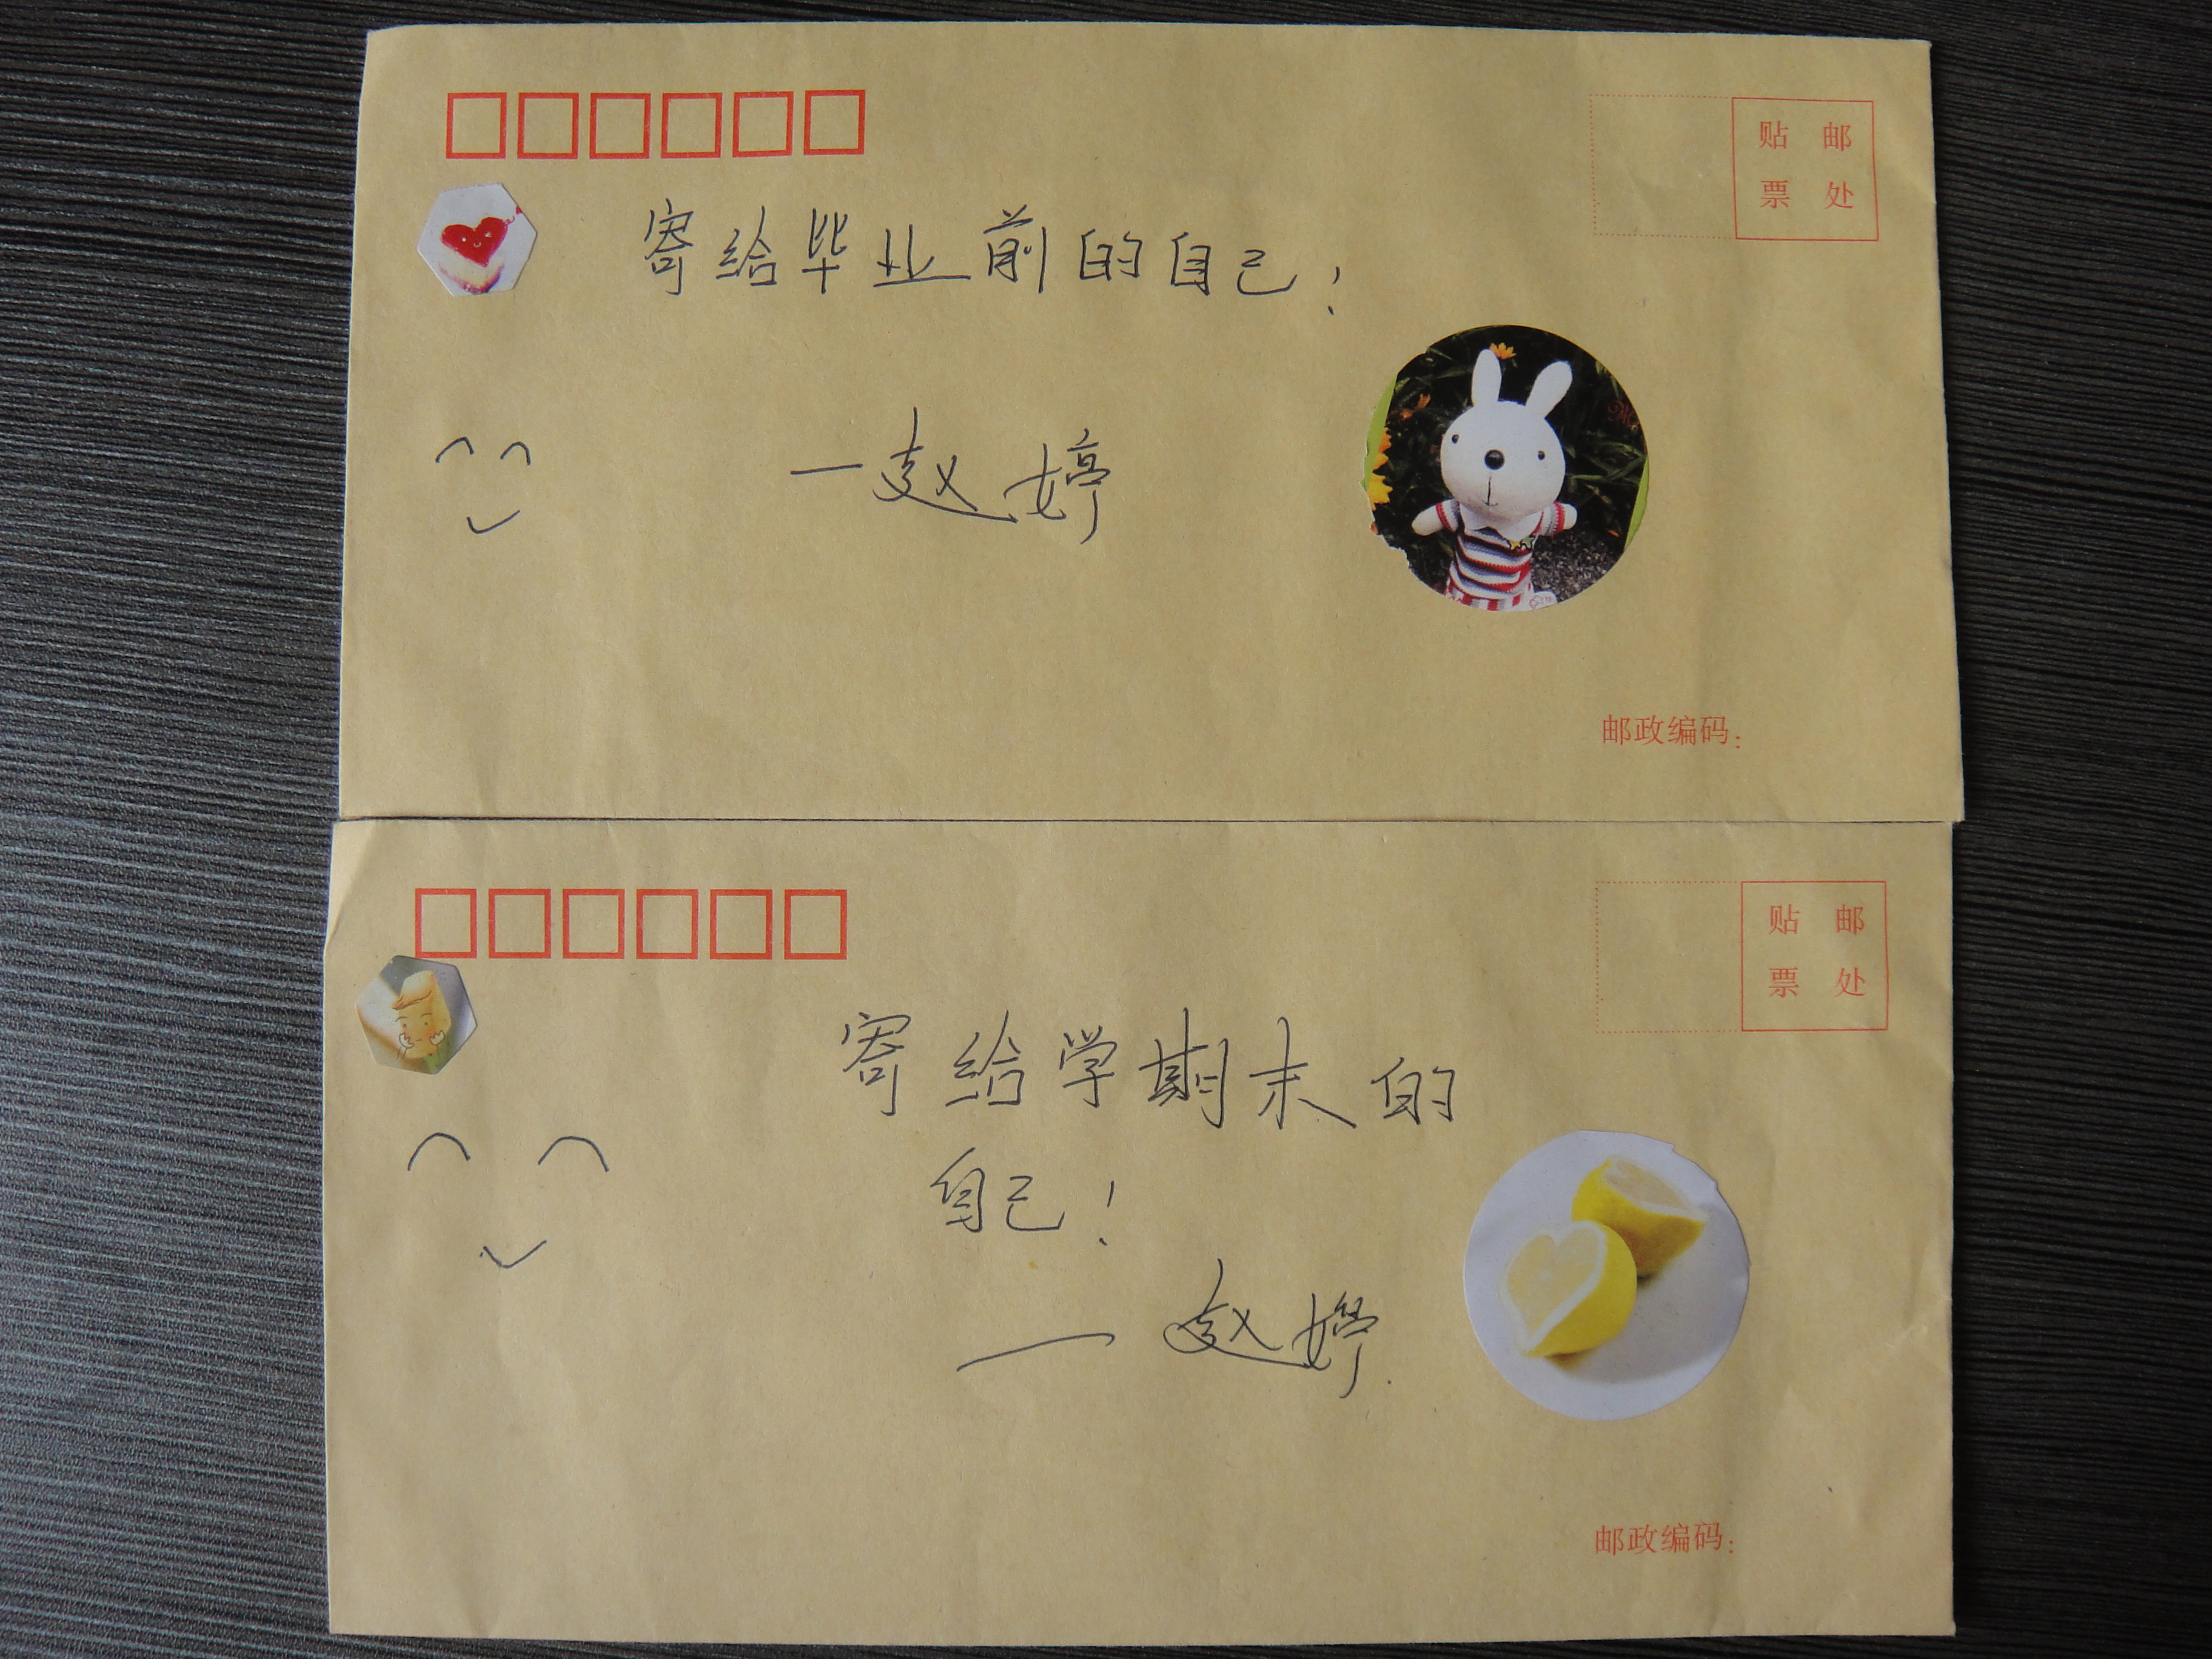 贴 邮
票 处
寄给毕业前的自己!
一赵婷
邮政编码:
贴 邮
票 处
寄给学期末的
自己!
— 赵婷.
邮政编码: